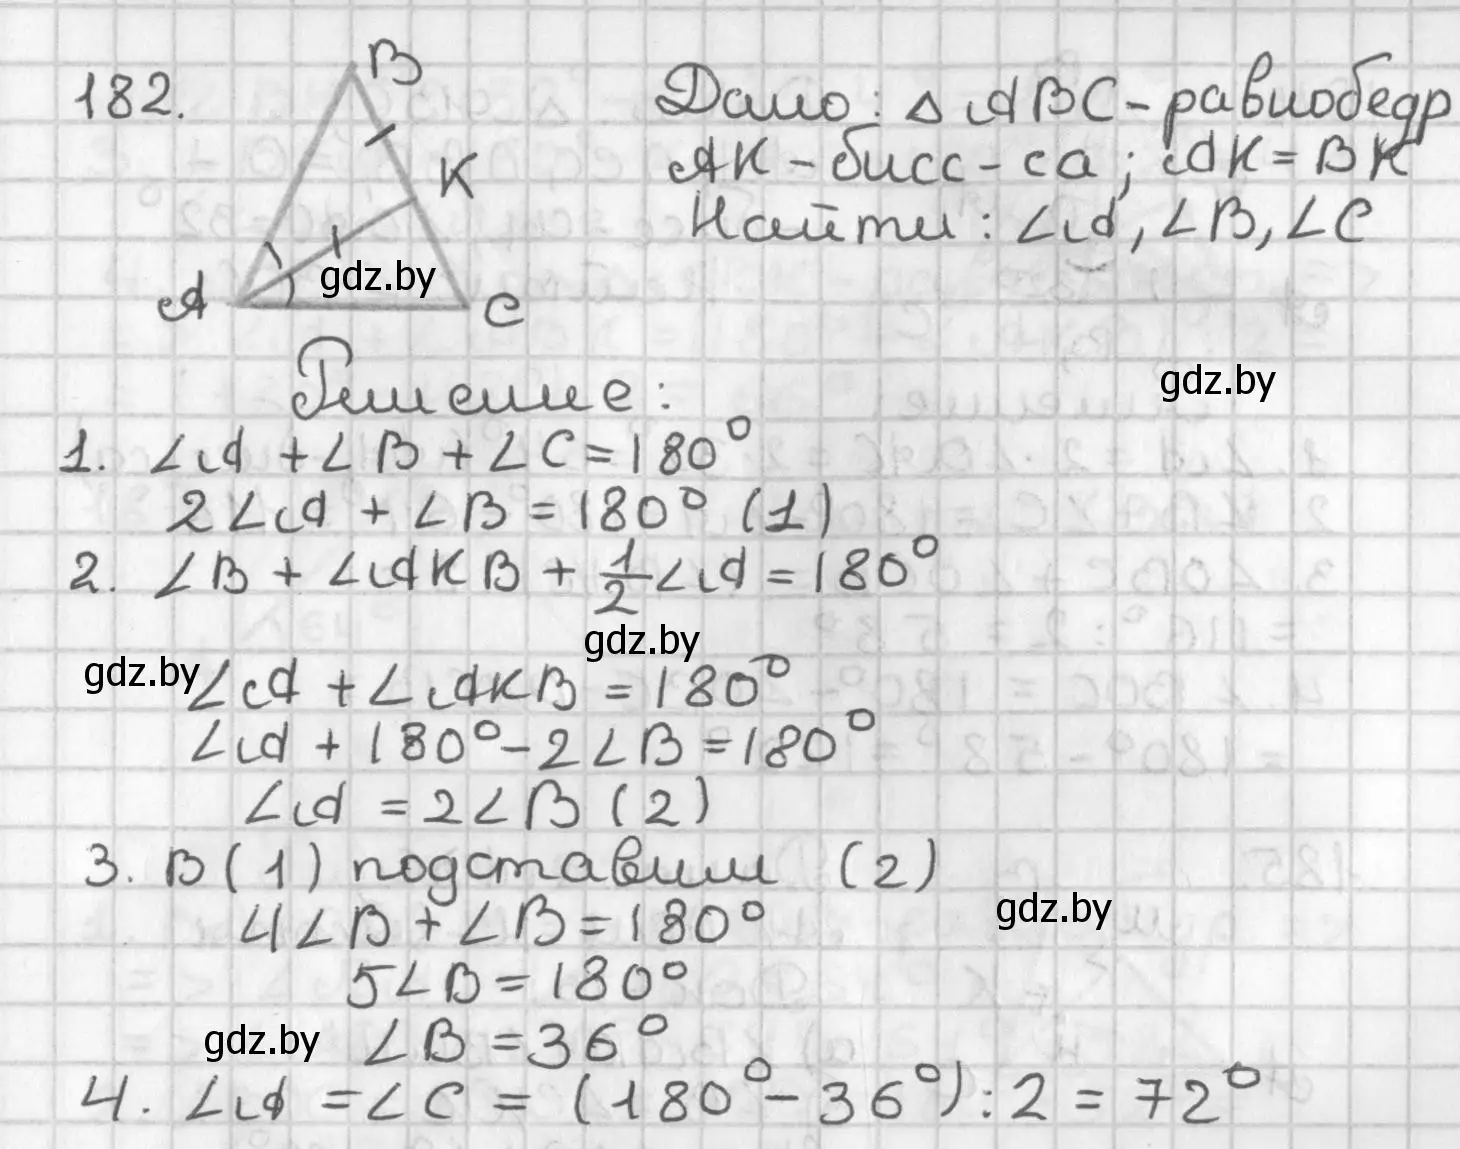 182.
B
K
A
C
Дано: △ ABC - равнобедр
AK - бисс-са; AK = BK
Найти: ∠A, ∠B, ∠C
gdz.by
Решение:
gdz.by
1. ∠A + ∠B + ∠C = 180°
2∠A + ∠B = 180° (1)
2. ∠B + ∠AKB + 1/2 ∠A = 180°
gdz.by
gdz.by
∠A + ∠AKB = 180°
∠A + 180° - 2∠B = 180°
∠A = 2∠B (2)
3. В (1) подставим (2)
gdz.by
4∠B + ∠B = 180°
5∠B = 180°
gdz.by
∠B = 36°
4. ∠A = ∠C = (180° - 36°) : 2 = 72°